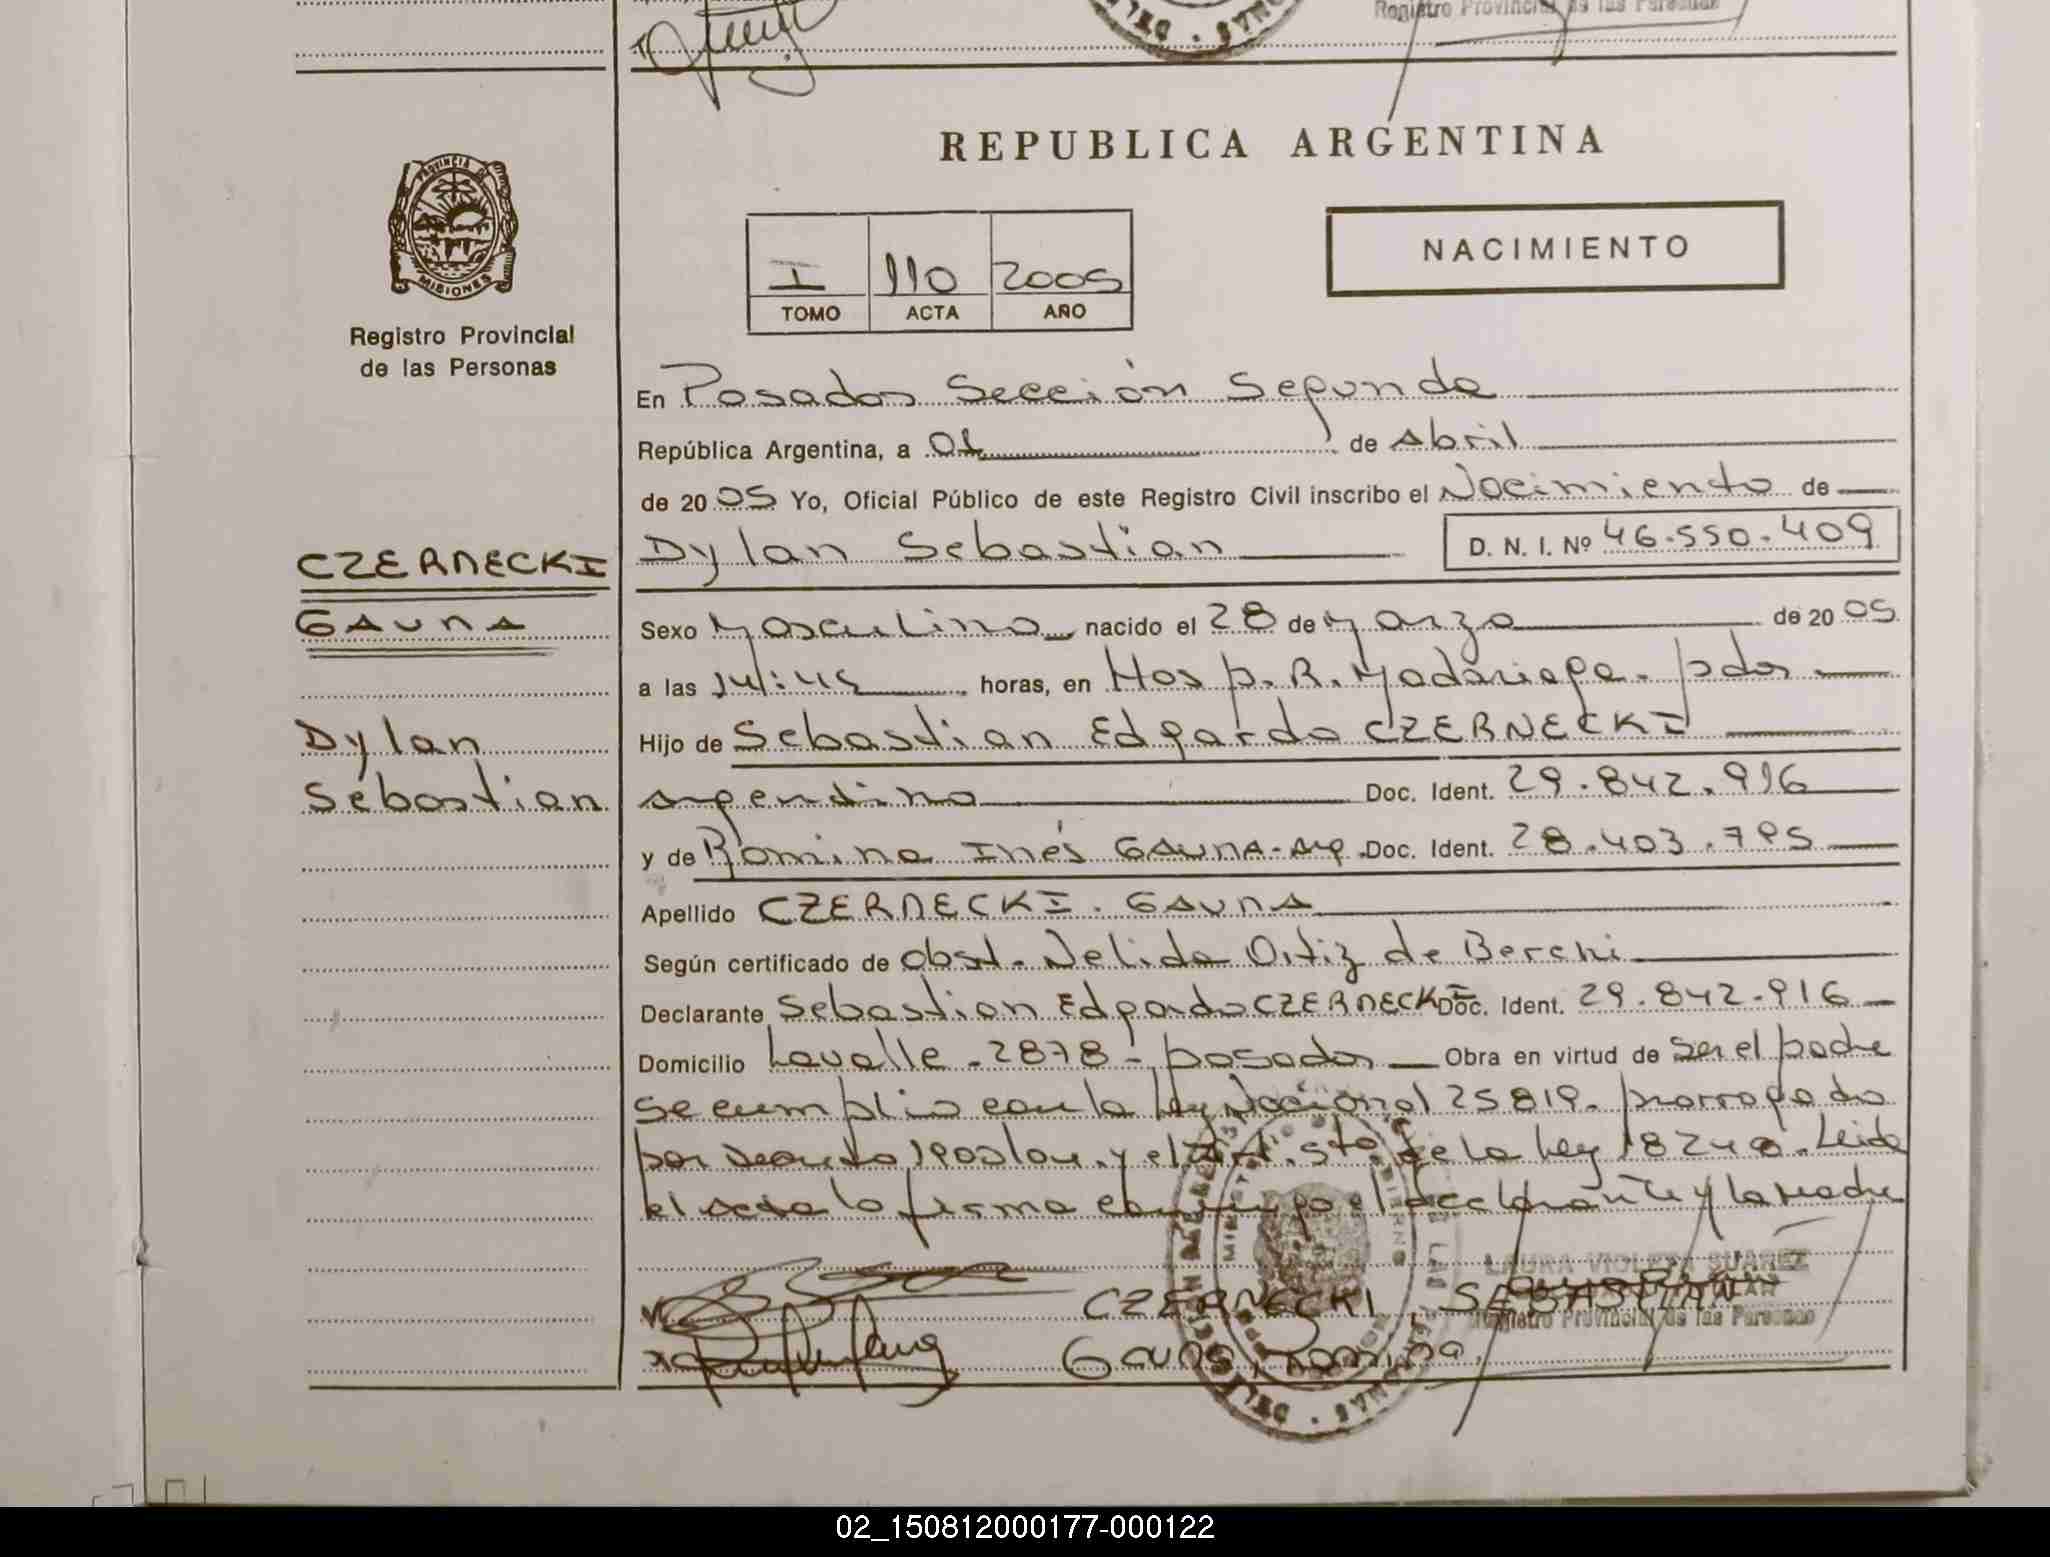 Registro Provincial de las Personas
REPUBLICA ARGENTINA
PROVINCIA DE
MISIONES
Registro Provincial
de las Personas
I 110 2005
TOMO ACTA AÑO
NACIMIENTO
En Posadas Sección Segunda
República Argentina, a 01 de Abril
de 20 05 Yo, Oficial Público de este Registro Civil inscribo el Nacimiento de
CZERNECKI
Dylan Sebastian D. N. I. Nº 46.550.409
GAUNA
Sexo Masculino nacido el 28 de Marzo de 20 05
a las 14:45 horas, en Hosp. R. Madariaga. pdas
Dylan
Hijo de Sebastian Edgardo CZERNECKI
Sebastian
argentino Doc. Ident. 29.842.916
y de Romina Inés GAUNA - arg. Doc. Ident. 28.403.795
Apellido CZERNECKI. GAUNA
Según certificado de obst. Nelida Ortiz de Berchi
Declarante Sebastian Edgardo CZERNECKI Doc. Ident. 29.842.916
Domicilio Lavalle - 2878 - posadas Obra en virtud de ser el padre
se cumplio con la ley Nacional 25819. prorrogado
por Decreto 1900/04. y el Art. 5to de la ley 18248. Leida
el acta la firma conmigo el declarante y la madre
LAURA VIOLETA SUAREZ
CZERNECKI SEBASTIAN
Registro Provincial de las Personas
Gauna, Romina
02_150812000177-000122